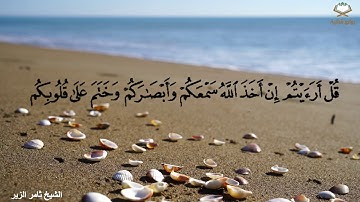 قُلْ أَرَءَيْتُمْ إِنْ أَخَذَ ٱللَّهُ سَمْعَكُمْ وَأَبْصَٰرَكُمْ وَخَتَمَ عَلَىٰ قُلُوبِكُم
الشيخ ثامر الزير